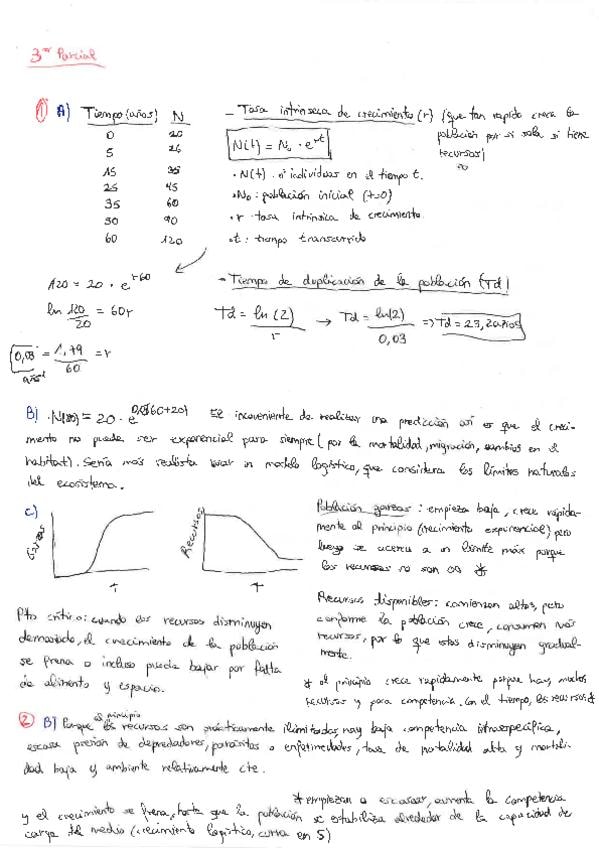 3er Parcial
1 A) Tiempo (años) N
0 20
5 26
15 35
25 45
35 60
50 90
60 120
- Tasa intrínseca de crecimiento (r) (que tan rapido crece la
población por si sola si tiene
recursos)
N(t) = N₀ · e^rt
· N(t): nº individuos en el tiempo t.
· N₀: población inicial (t=0)
· r: tasa intrínsica de crecimiento.
· t: tiempo transcurrido
120 = 20 · e^r·60
ln 120/20 = 60r
0,03 años⁻¹ = 1,79/60 = r
- Tiempo de duplicación de la población (Td)
Td = ln(2)/r → Td = ln(2)/0,03 => Td = 23,20 años
B) · N(80) = 20 · e^0,03(60+20) El inconveniente de realizar una predicción así es que el creci-
miento no puede ser exponencial para siempre (por la mortalidad, migración, cambios en el
habitat). Sería más realista usar un modelo logístico, que considera los límites naturales
del ecosistema.
C)
Garzas
T
Recursos
T
Población garzas: empieza baja, crece rápida-
mente al principio (crecimiento exponencial) pero
luego se acerca a un límite máx porque
los recursos no son ∞ *
Recursos disponibles: comienzan altos, pero
conforme la población crece, consumen más
recursos, por lo que estos disminuyen gradual-
mente.
Pto crítico: cuando los recursos disminuyen
demasiado, el crecimiento de la población
se frena o incluso puede bajar por falta
de alimento y espacio.
* al principio crece rapidamente porque hay muchos
recursos y poca competencia. Con el tiempo, los recursos *
2 B) Porque al principio los recursos son prácticamente ilimitados, hay baja competencia intraespecífica,
escasa presión de depredadores, parásitos o enfermedades, tasa de natalidad alta y mortali-
dad baja y ambiente relativamente cte.
* empiezan a escasear, aumenta la competencia
y el crecimiento se frena, hasta que la población se estabiliza alrededor de la capacidad de
carga del medio (crecimiento logístico, curva en S)